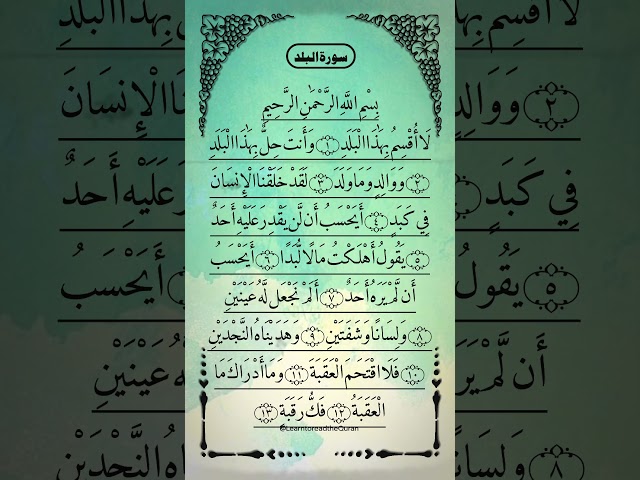 سورة البلد
بِسْمِ اللَّهِ الرَّحْمَٰنِ الرَّحِيمِ
لَا أُقْسِمُ بِهَٰذَا الْبَلَدِ ١ وَأَنتَ حِلٌّ بِهَٰذَا الْبَلَدِ
٢ وَوَالِدٍ وَمَا وَلَدَ ٣ لَقَدْ خَلَقْنَا الْإِنسَانَ
فِي كَبَدٍ ٤ أَيَحْسَبُ أَن لَّن يَقْدِرَ عَلَيْهِ أَحَدٌ
٥ يَقُولُ أَهْلَكْتُ مَالًا لُّبَدًا ٦ أَيَحْسَبُ
أَن لَّمْ يَرَهُ أَحَدٌ ٧ أَلَمْ نَجْعَل لَّهُ عَيْنَيْنِ
٨ وَلِسَانًا وَشَفَتَيْنِ ٩ وَهَدَيْنَاهُ النَّجْدَيْنِ
١٠ فَلَا اقْتَحَمَ الْعَقَبَةَ ١١ وَمَا أَدْرَاكَ مَا
الْعَقَبَةُ ١٢ فَكُّ رَقَبَةٍ ١٣
@LearntoreadtheQuran